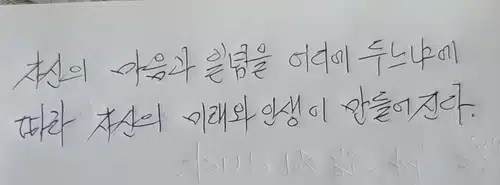 자신의 마음과 일념을 어디에 두느냐에
따라 자신의 미래와 인생이 만들어진다.